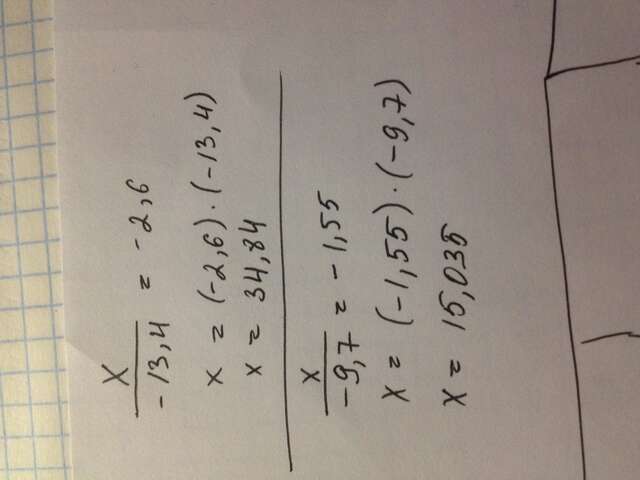 x/-13,4 = -2,6
x = (-2,6)·(-13,4)
x = 34,84
x/-9,7 = -1,55
x = (-1,55)·(-9,7)
x = 15,035